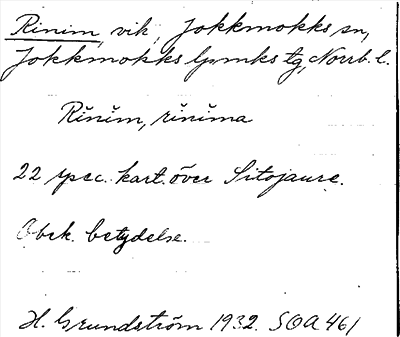 Rinim, vik, Jokkmokks sn,
Jokkmokks lpmks tg, Norrb. l.
Rǐnǐm, rǐnǐma
22 spec. kart. över Sitojaure.
Obek. betydelse.
H. Grundström 1932. SOA 461